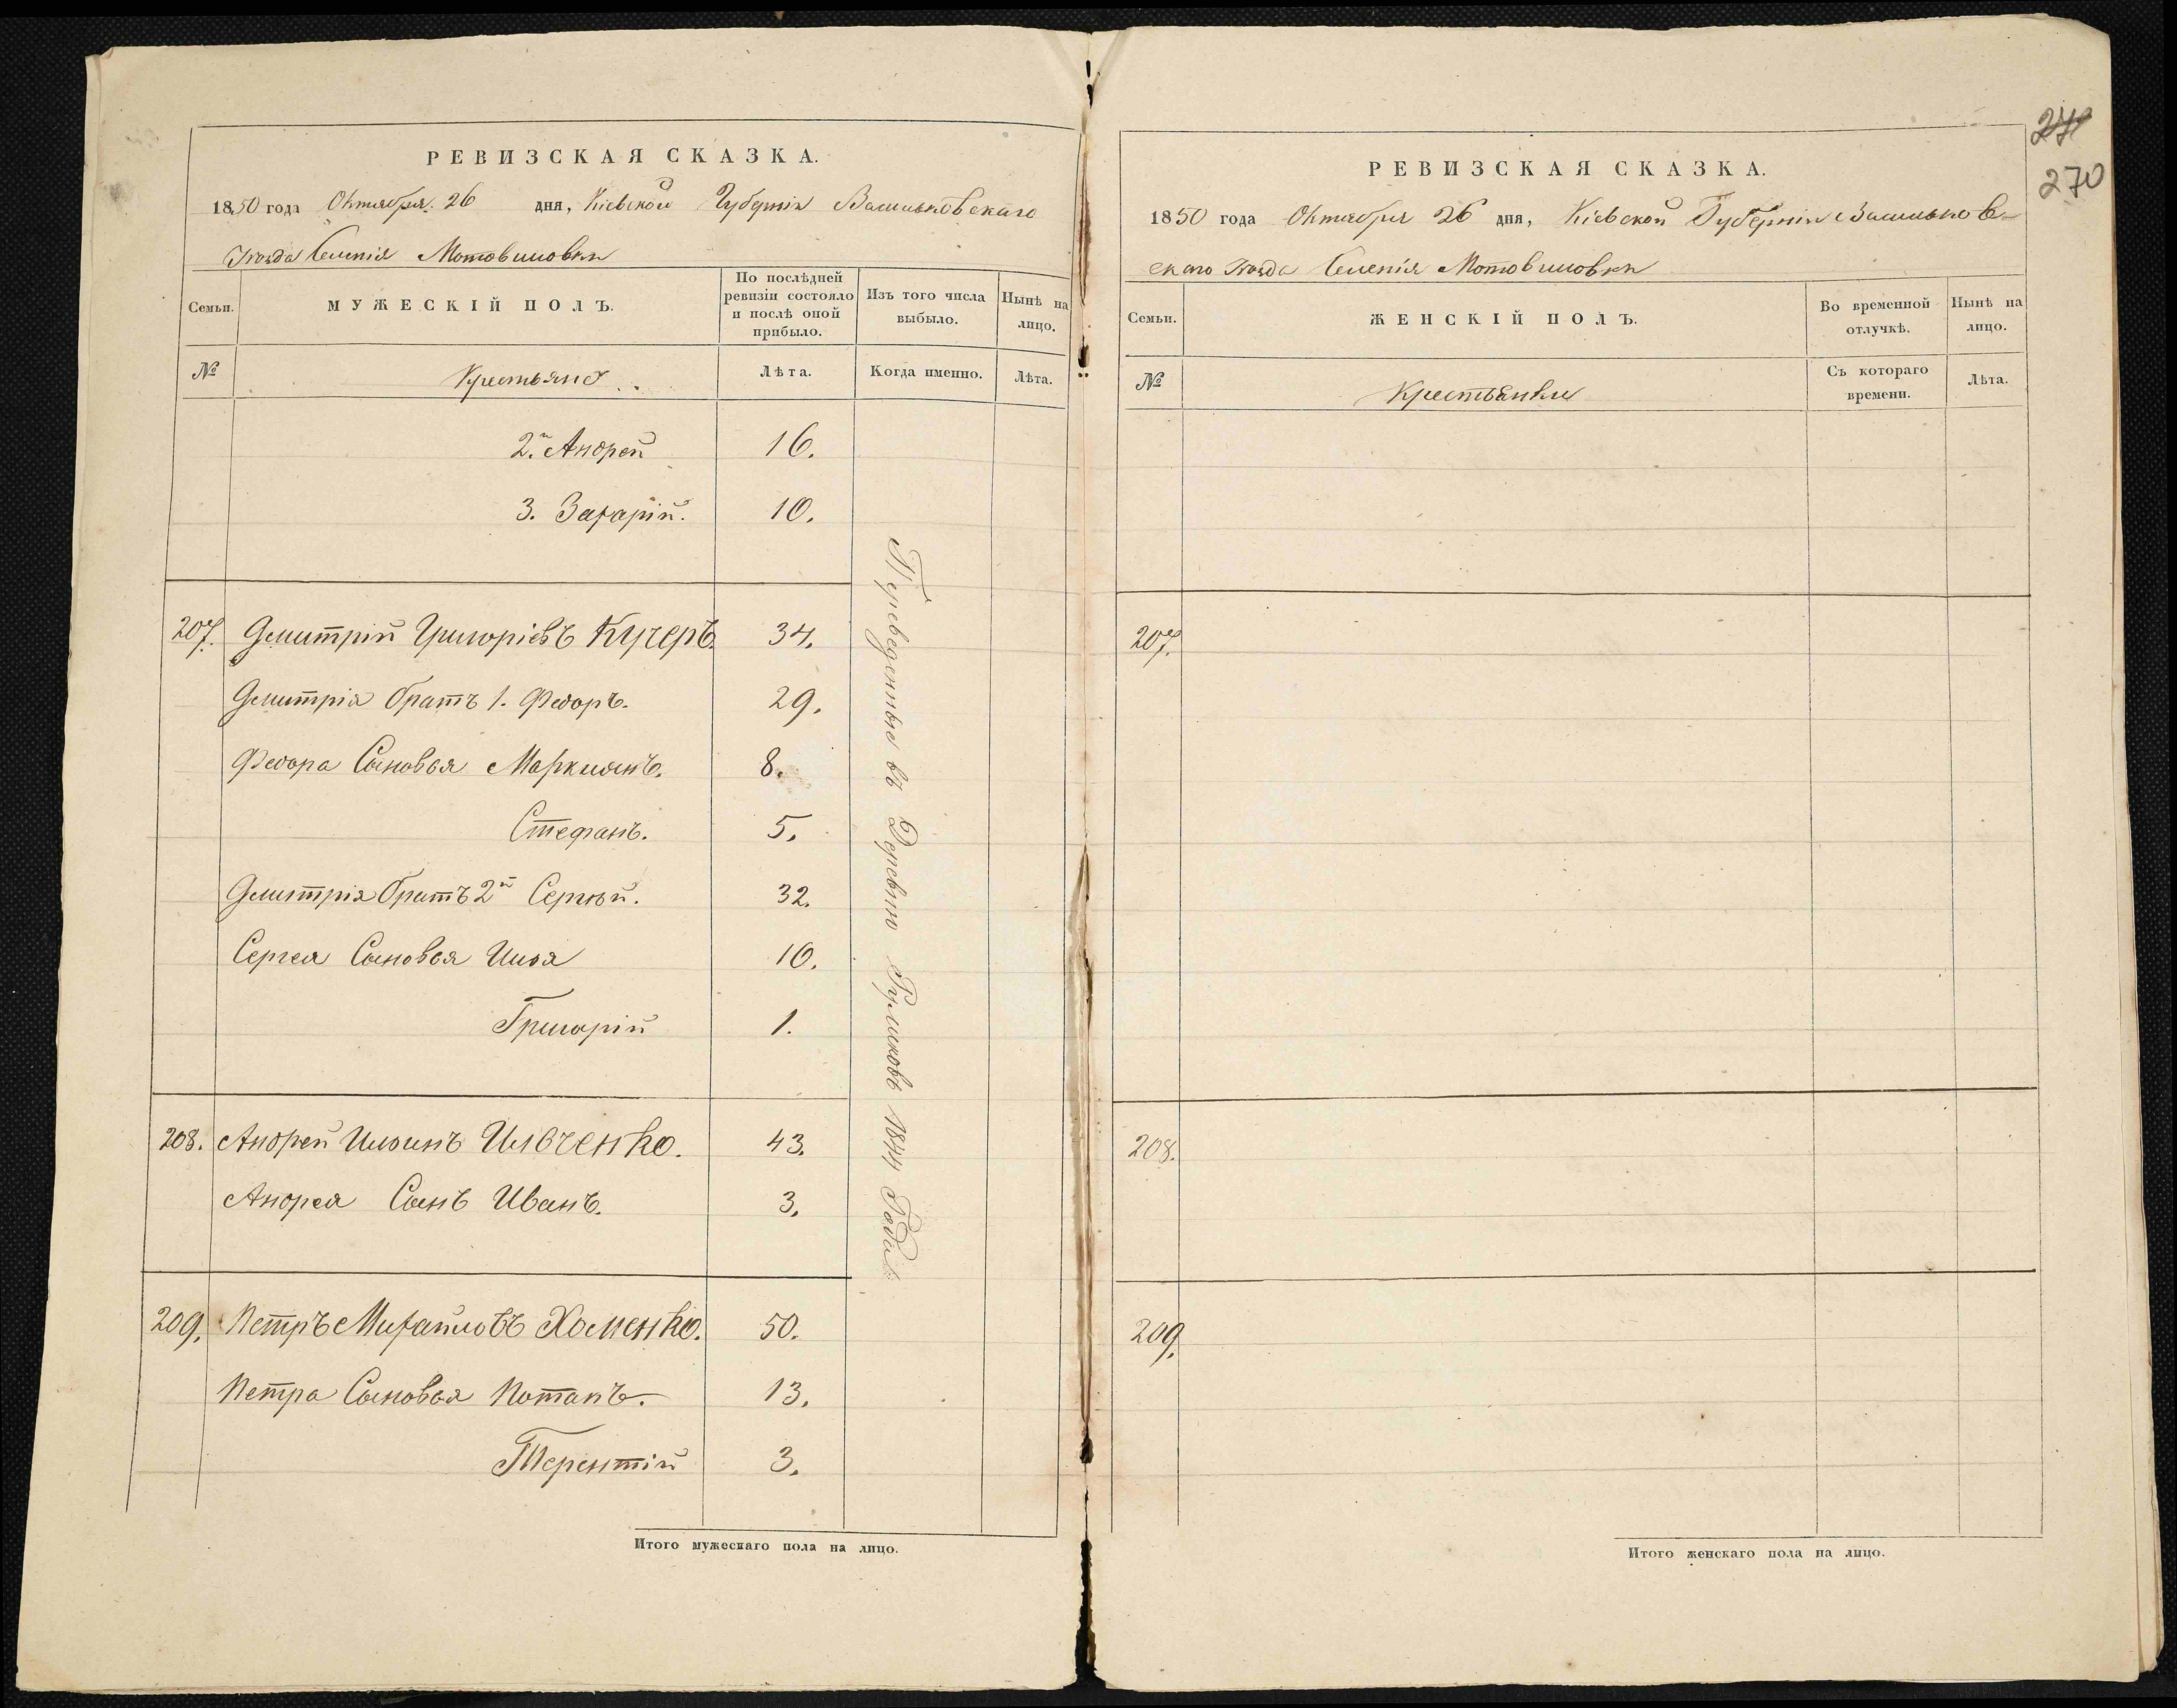 РЕВИЗСКАЯ СКАЗКА.
1850 года Октября 26 дня, Кіевской Губерніи Васильковскаго
Уѣзда Селенія Мотовиловки
Семьи.
МУЖЕСКІЙ ПОЛЪ.
По послѣдней ревизіи состояло и послѣ оной прибыло.
Изъ того числа выбыло.
Нынѣ на лицо.
№
Крестьяне
Лѣта.
Когда именно.
Лѣта.
2й Андрей 16.
3. Захарій. 10.
207. Дмитрій Григоріевъ Кучеръ. 34.
Дмитрія братъ 1. Федоръ. 29.
Федора Сыновья Маркианъ. 8.
Стефанъ. 5.
Дмитрія братъ 2й Сергѣй. 32.
Сергея Сыновья Илья 10.
Григорій 1.
208. Андрей Ильинъ Ильченко. 43.
Андрея Сынъ Иванъ. 3.
209. Петръ Михайловъ Хоменко. 50.
Петра Сыновья Потапъ. 13.
Терентій 3.
Переведенные въ Деревню 1844 Года
Итого мужескаго пола на лицо.
270
РЕВИЗСКАЯ СКАЗКА.
1850 года Октября 26 дня, Кіевской Губерніи Васильков-
скаго Уѣзда Селенія Мотовиловки
Семьи.
ЖЕНСКІЙ ПОЛЪ.
Во временной отлучкѣ.
Нынѣ на лицо.
№
Крестьянки
Съ котораго времени.
Лѣта.
207.
208.
209.
Итого женскаго пола на лицо.